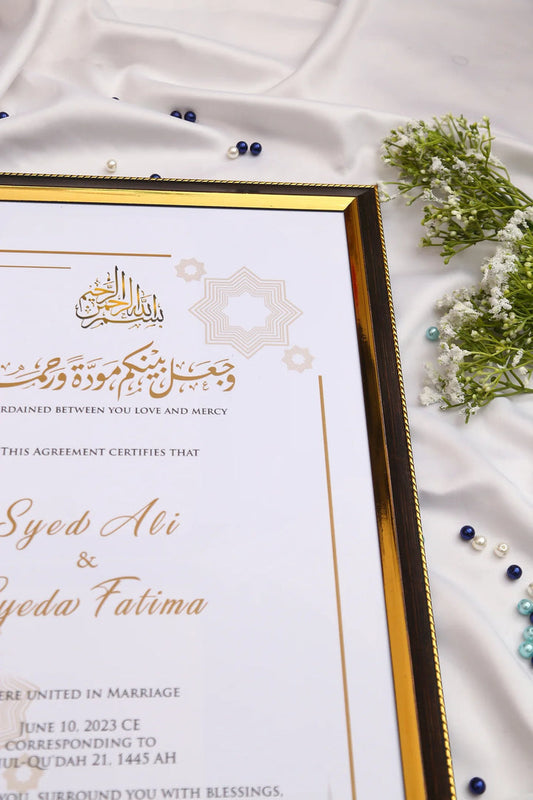 بسم الله الرحمن الرحيم
وجعل بينكم مودة ورحمـ
RDAINED BETWEEN YOU LOVE AND MERCY
THIS AGREEMENT CERTIFIES THAT
Syed Ali
&
yeda Fatima
ERE UNITED IN MARRIAGE
JUNE 10, 2023 CE
CORRESPONDING TO
UL-QU'DAH 21, 1445 AH
YOU, SURROUND YOU WITH BLESSINGS,